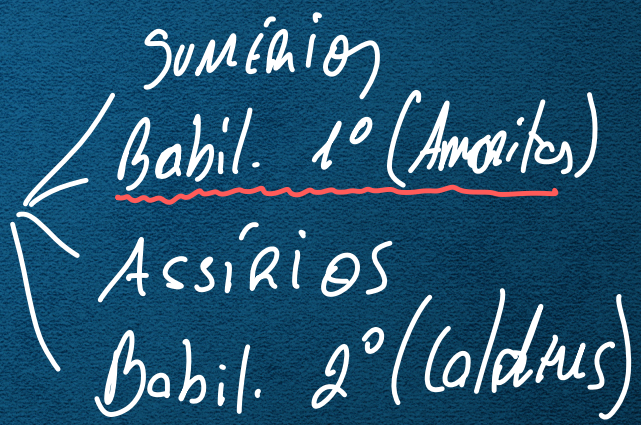 SUMÉRIOS
Babil. 1º (Amoritas)
ASSÍRIOS
Babil. 2º (Caldeus)